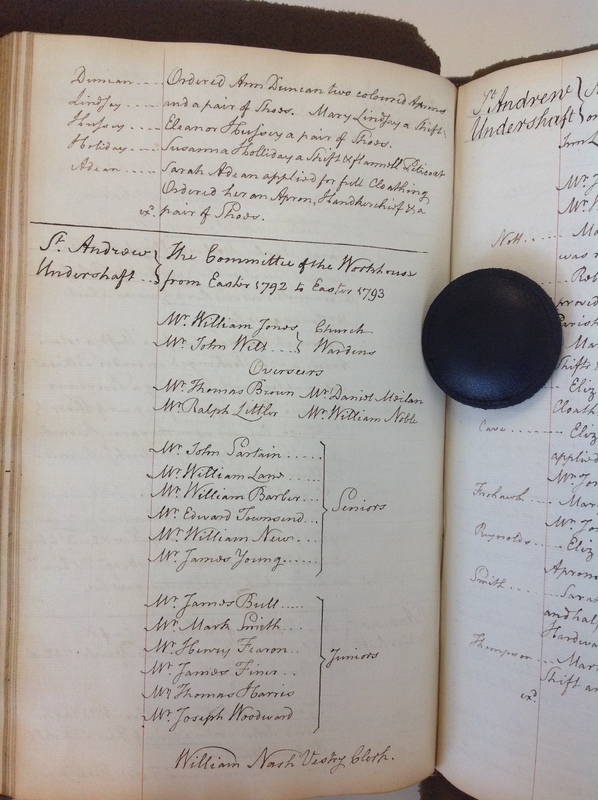 Duncan .... Ordered Ann Duncan two coloured Aprons
Lindsey .... and a pair of Shoes. Mary Lindsey a Shift
Hussey .... Eleanor Hussey a pair of Shoes.
Holiday .... Susanna Holliday a Shift & flannell Peticoat
Adean .... Sarah Adean applied for full Cloathing
Ordered her an Apron, Handkerchief & a
exd. pair of Shoes.
St. Andrew Undershaft } The Committee of the Workhouse
from Easter 1792 to Easter 1793
Mr. William Jones } Church
Mr. John Wilt ... } Wardens
Overseers
Mr. Thomas Brown Mr. Daniel Meilan
Mr. Ralph Littler Mr. William Noble
Mr. John Partain ......
Mr. William Lane .....
Mr. William Barber ...
Mr. Edward Townsend ...
Mr. William New ...
Mr. James Young ......
Seniors
Mr. James Bull .....
Mr. Mark Smith ...
Mr. Henry Fearon ..
Mr. James Finer ...
Mr. Thomas Harris
Mr. Joseph Woodward
Juniors
William Nash Vestry Clerk.
St. Andrew
Undershaft
Nott ....
was
Cave ........ Eliz
applied
Mr. Jon
Mar
Reynolds .... Eliz
Aprons
Smith ..... Sara
and half
Thompson ... Mar
Shift an
exd.